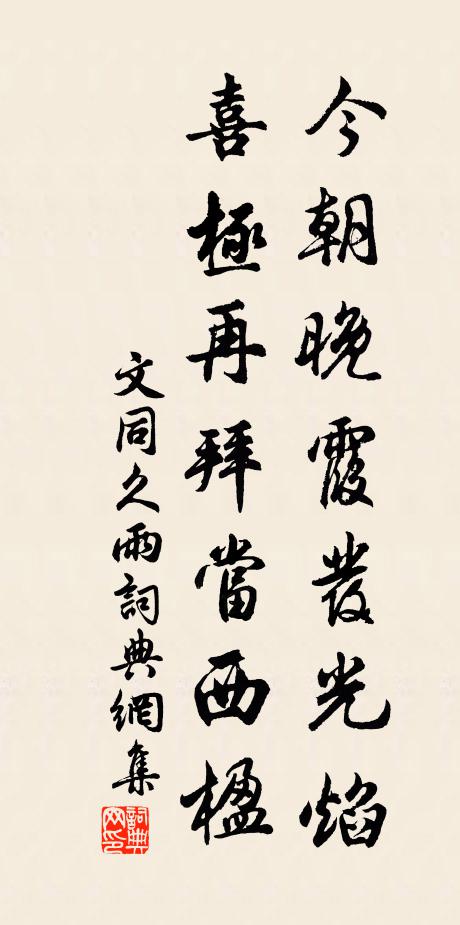 今朝晚霞發光焰
喜極再拜當西楹
文同久雨詞典網集
詞典網印